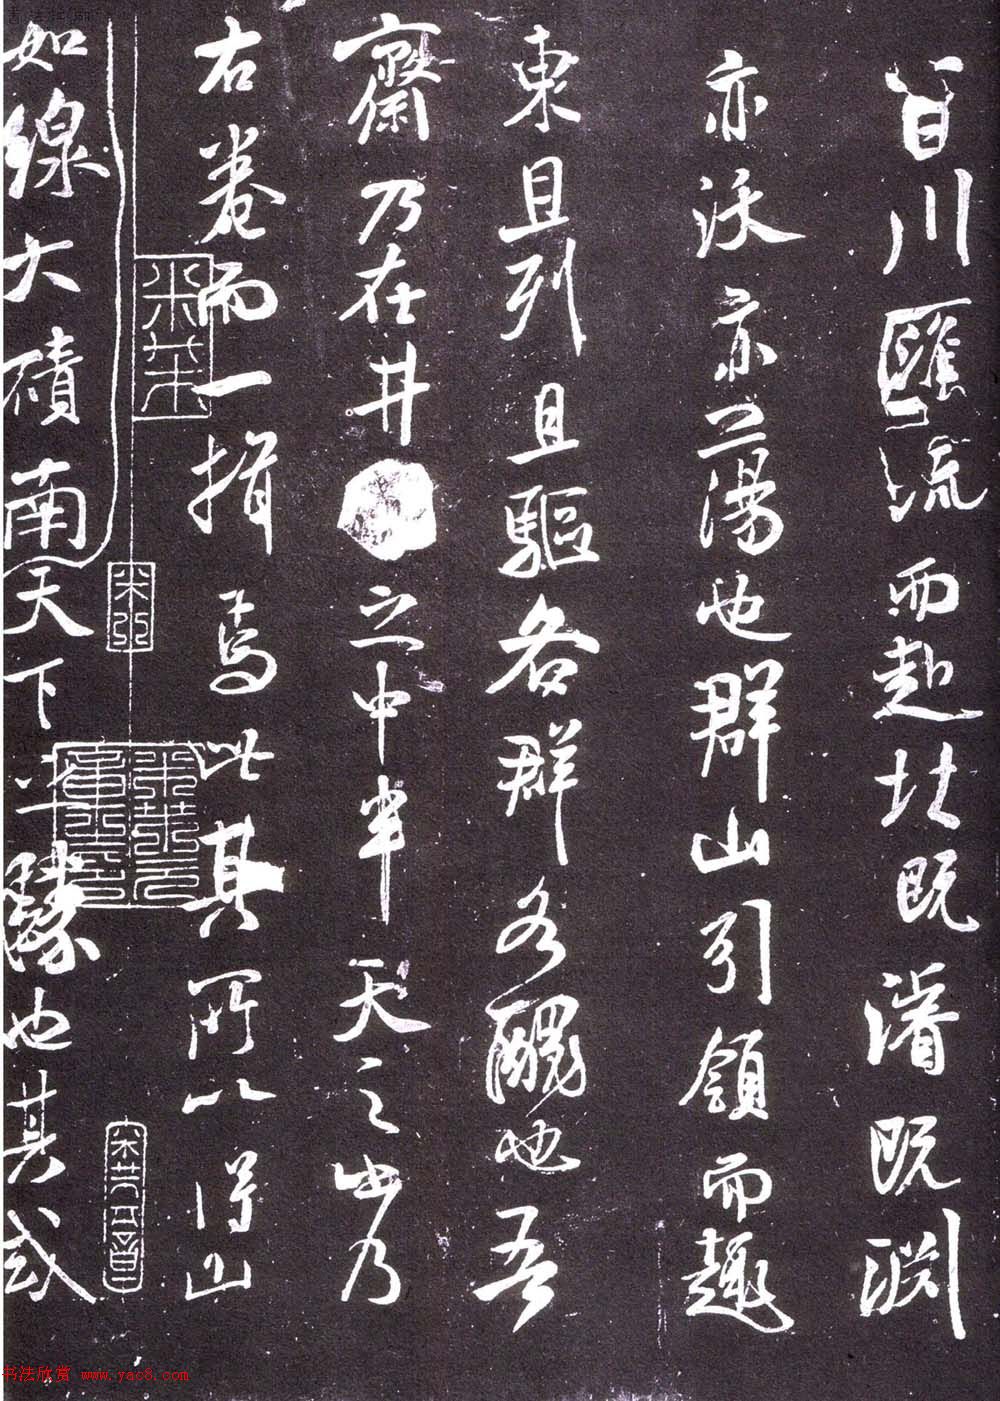 百川匯流而赴北既瀦既淵
亦沃亦蕩也群山引領而趨
東且列且驅各群各醜也吾
齋乃在井之中半天之山乃
右卷而一捎焉此其所以得山
如線大磧南天下坐隊也其或
米芾
书法欣赏 www.yac8.com